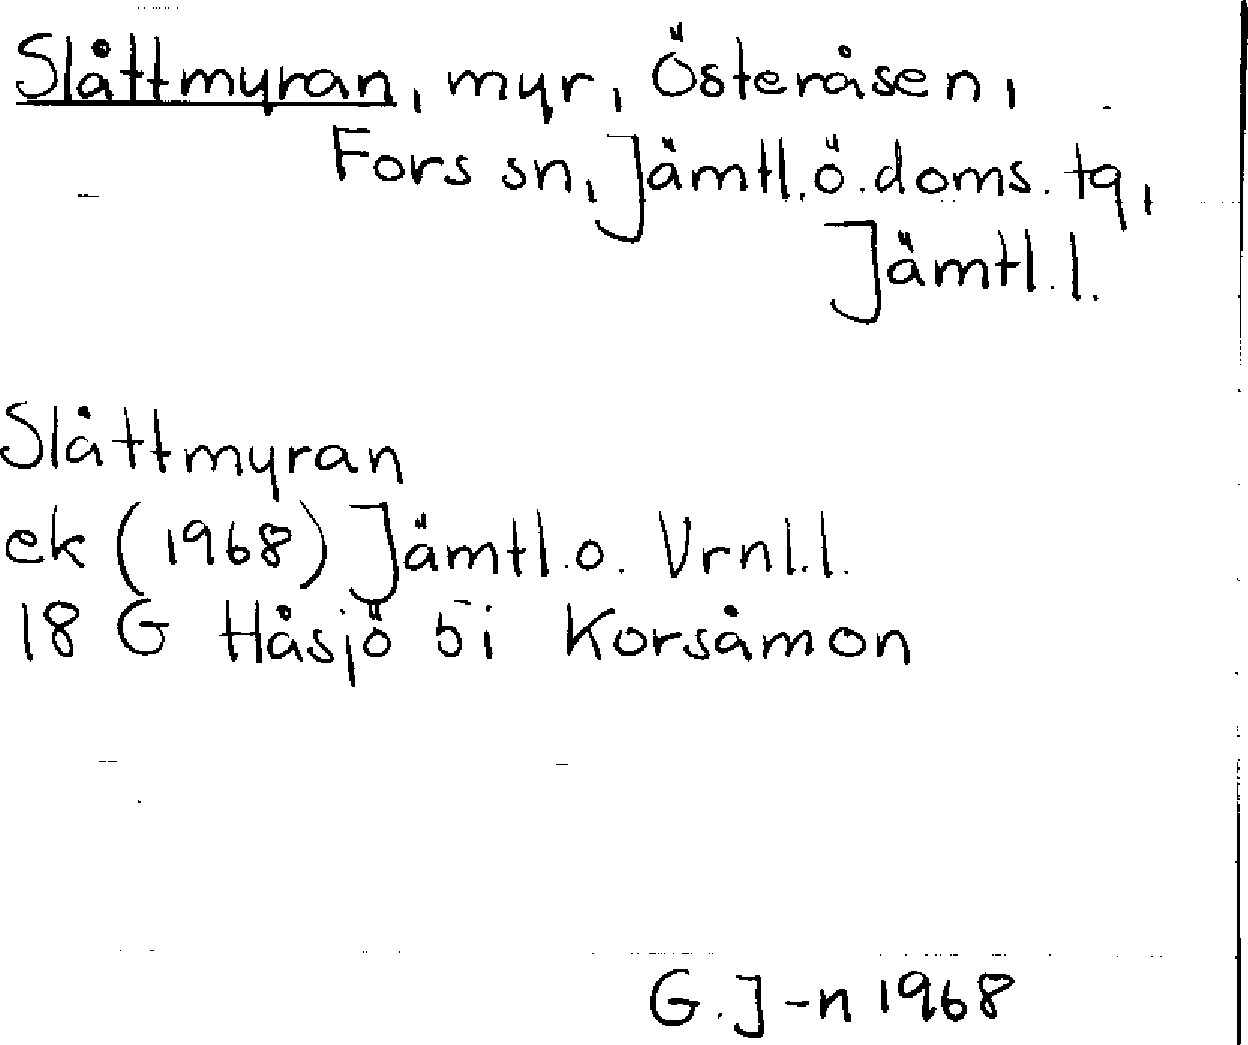 Slåttmyran, myr, Österåsen,
Fors sn, Jämtl.ö.doms.tg,
Jämtl.l.
Slåttmyran
ek (1968) Jämtl.o. Vrnl.l.
18 G Håsjö 5i Korsåmon
G.J-n 1968